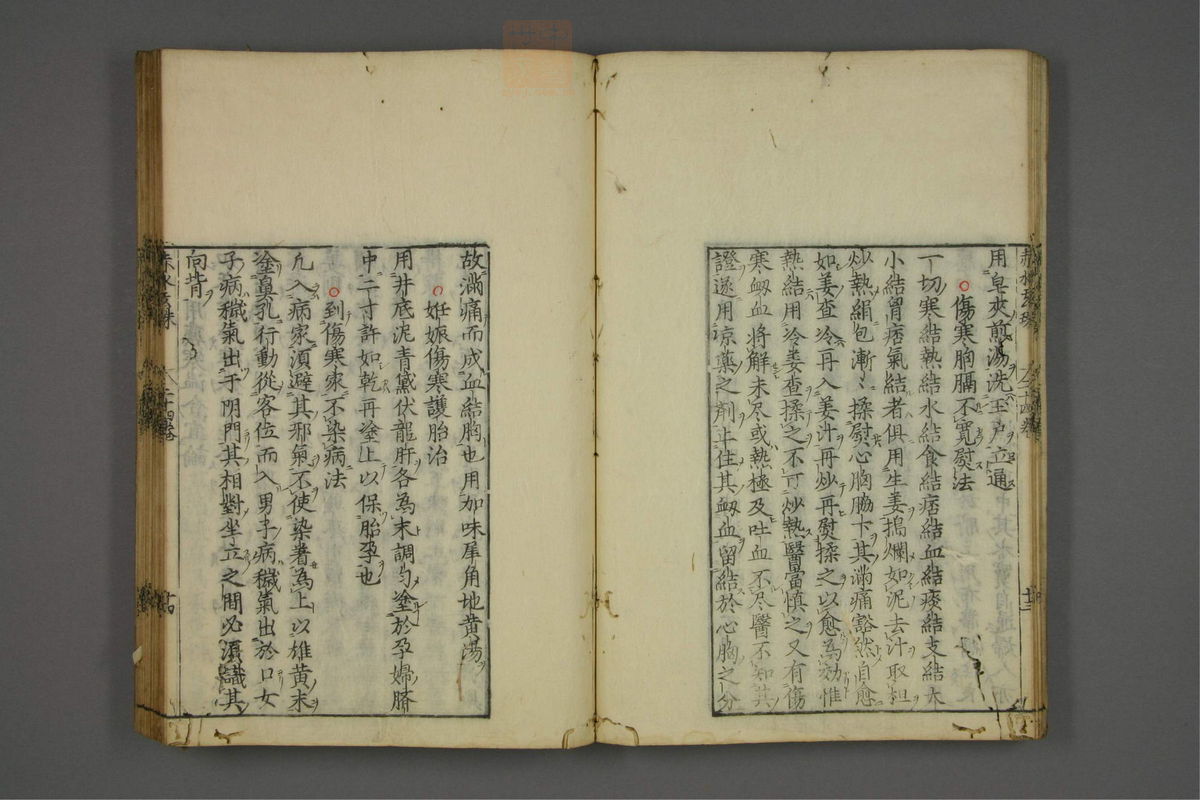 用皂夾煎湯洗玉户立通
傷寒胸膈不寬熨法
一切寒結熱結水結食結痞結血結痰結支結大
小結胷痞氣結者俱用生姜搗爛如泥去汁取柤
炒熱絹包漸〻揉熨心胸脇下其滿痛豁然自愈
如姜查冷再入姜汁再炒再熨揉之以愈為効惟
熱結用冷姜查揉之不可炒熱醫當慎之又有傷
寒衂血將解未尽或熱極及吐血不尽醫不知其
證遂用凉藥之劑止住其衂血留結於心胸之分
故滿痛而成血結胸也用加味犀角地黄湯
妊娠傷寒護胎治
用井底泥青黛伏龍肝各為末調勻塗於孕婦臍
中二寸許如乾再塗上以保胎孕也
到傷寒家不染病法
凡入病家須避其邪氣不使染着為上以雄黄末
塗鼻孔行動從客位而入男子病穢氣出於口女
子病穢氣出于阴門其相對坐立之間必須識其
向背